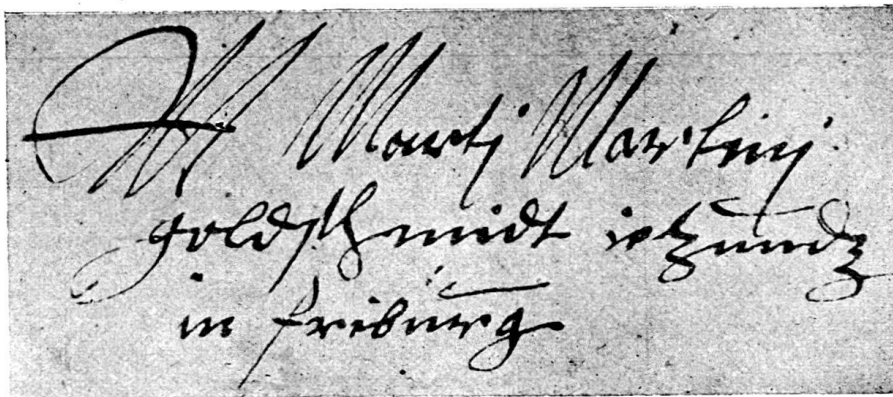 M Martj Martinj
goldschmidt ietzundz
in friburg